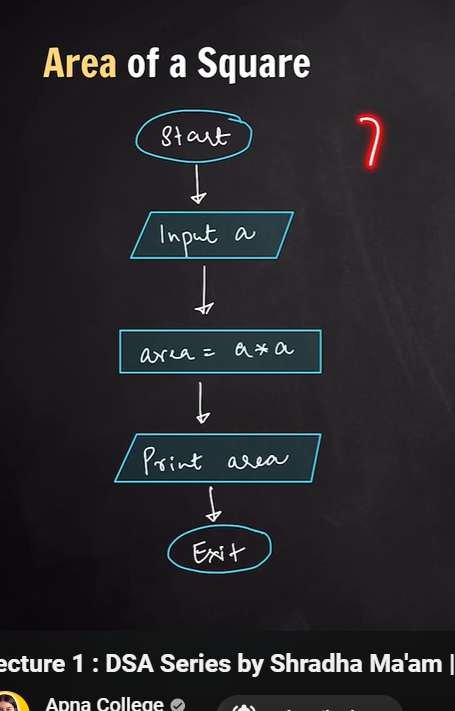 Area of a Square
Start
Input a
area = a*a
Print area
Exit
ecture 1 : DSA Series by Shradha Ma'am |
Apna College